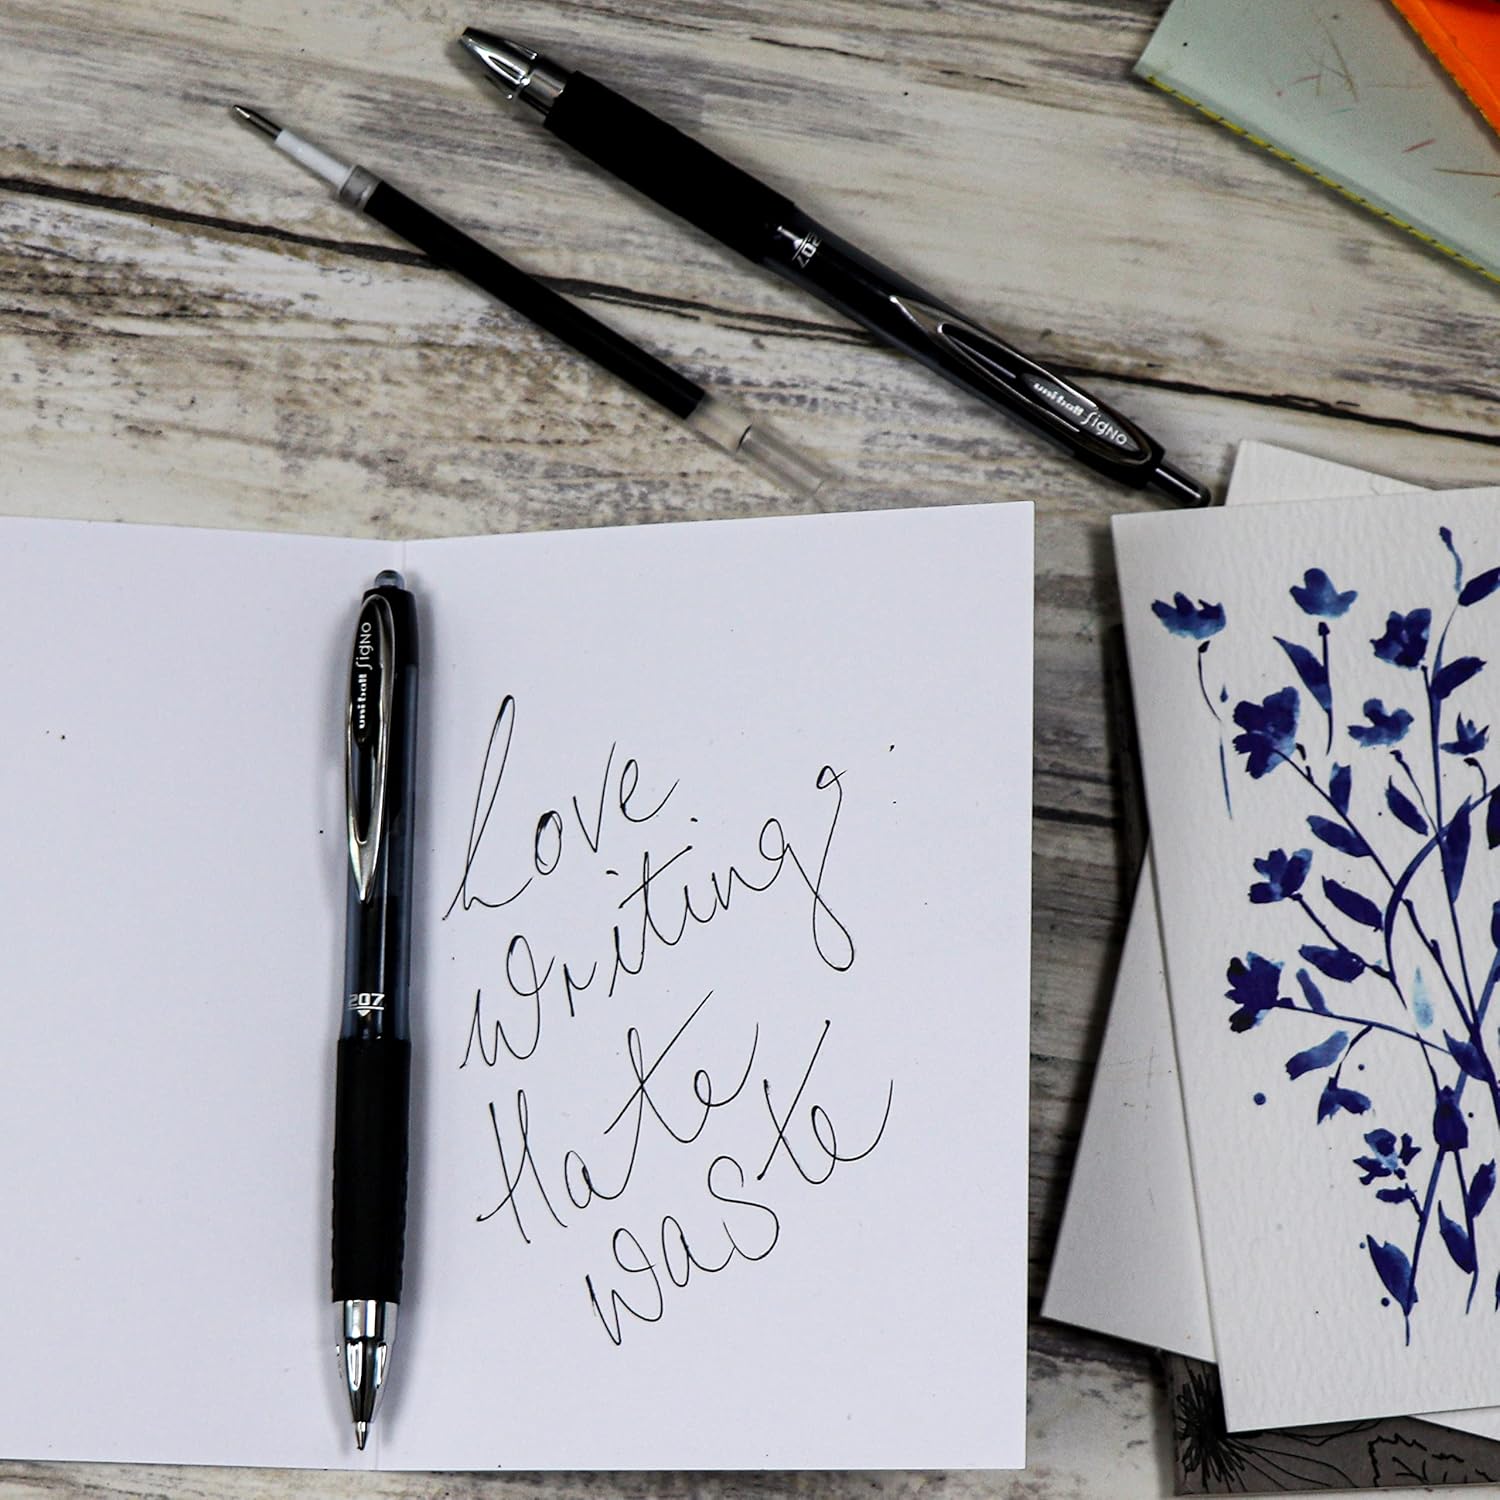 207
uniball Signo
uniball Signo
207
Love
Writing
Hate
Waste